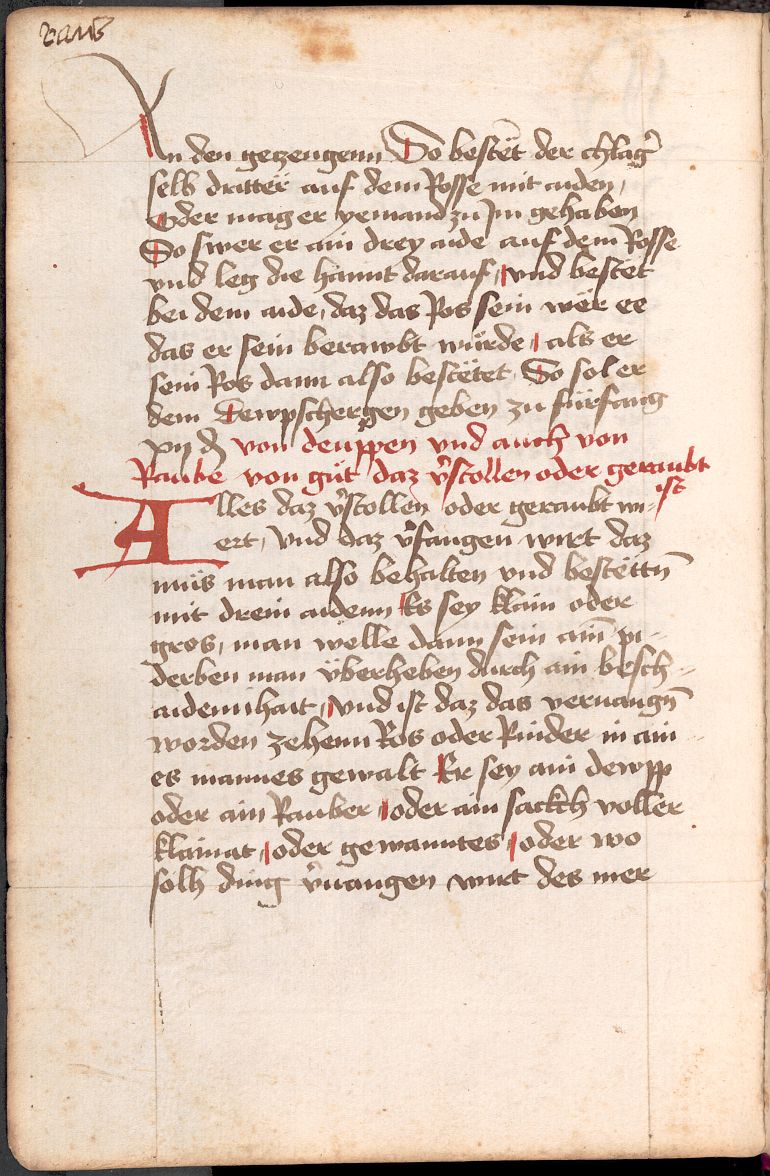 Raub
An den getzeugenn So bestët der chlag̉
selb dritter auf dem Rosse mit aiden,
Oder mag er yemand zu Im gehaben
So swer er ain drey aide auf dem Rosse
vnd leg die hannt darauf, vnd bestët
bei dem aide, daz das Ros sein wër ee
das er sein berawbt wurde, als er
sein Ros dann also bestëtet, So sol er
dem Dewpschergen geben zu fürfang
xij ₰ von deuppen vnd auch von
Raube von gůt daz v̉stollen oder geraubt
ist
Alles daz v̉stollen oder geraubt wi-
ert, vnd daz v̉fangen wirt daz
můs man also behalten vnd bestëttn̄
mit drein aidenn Es sey klain oder
gros, man wëlle dann sein ain̄ pi-
derben man v̈berheben durch ain besch-
aidennhait, vnd ist daz das veruangn̄
worden zehenn Ros oder Rinder in ain-
es mannes gewalt Er sey ain dewpp
oder ain Rauber, oder ain sackh voller
klainat, oder gewanntes, oder wo
solh ding v̉uangen wirt des mer